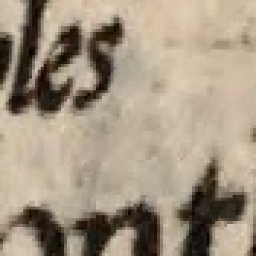 les
ont